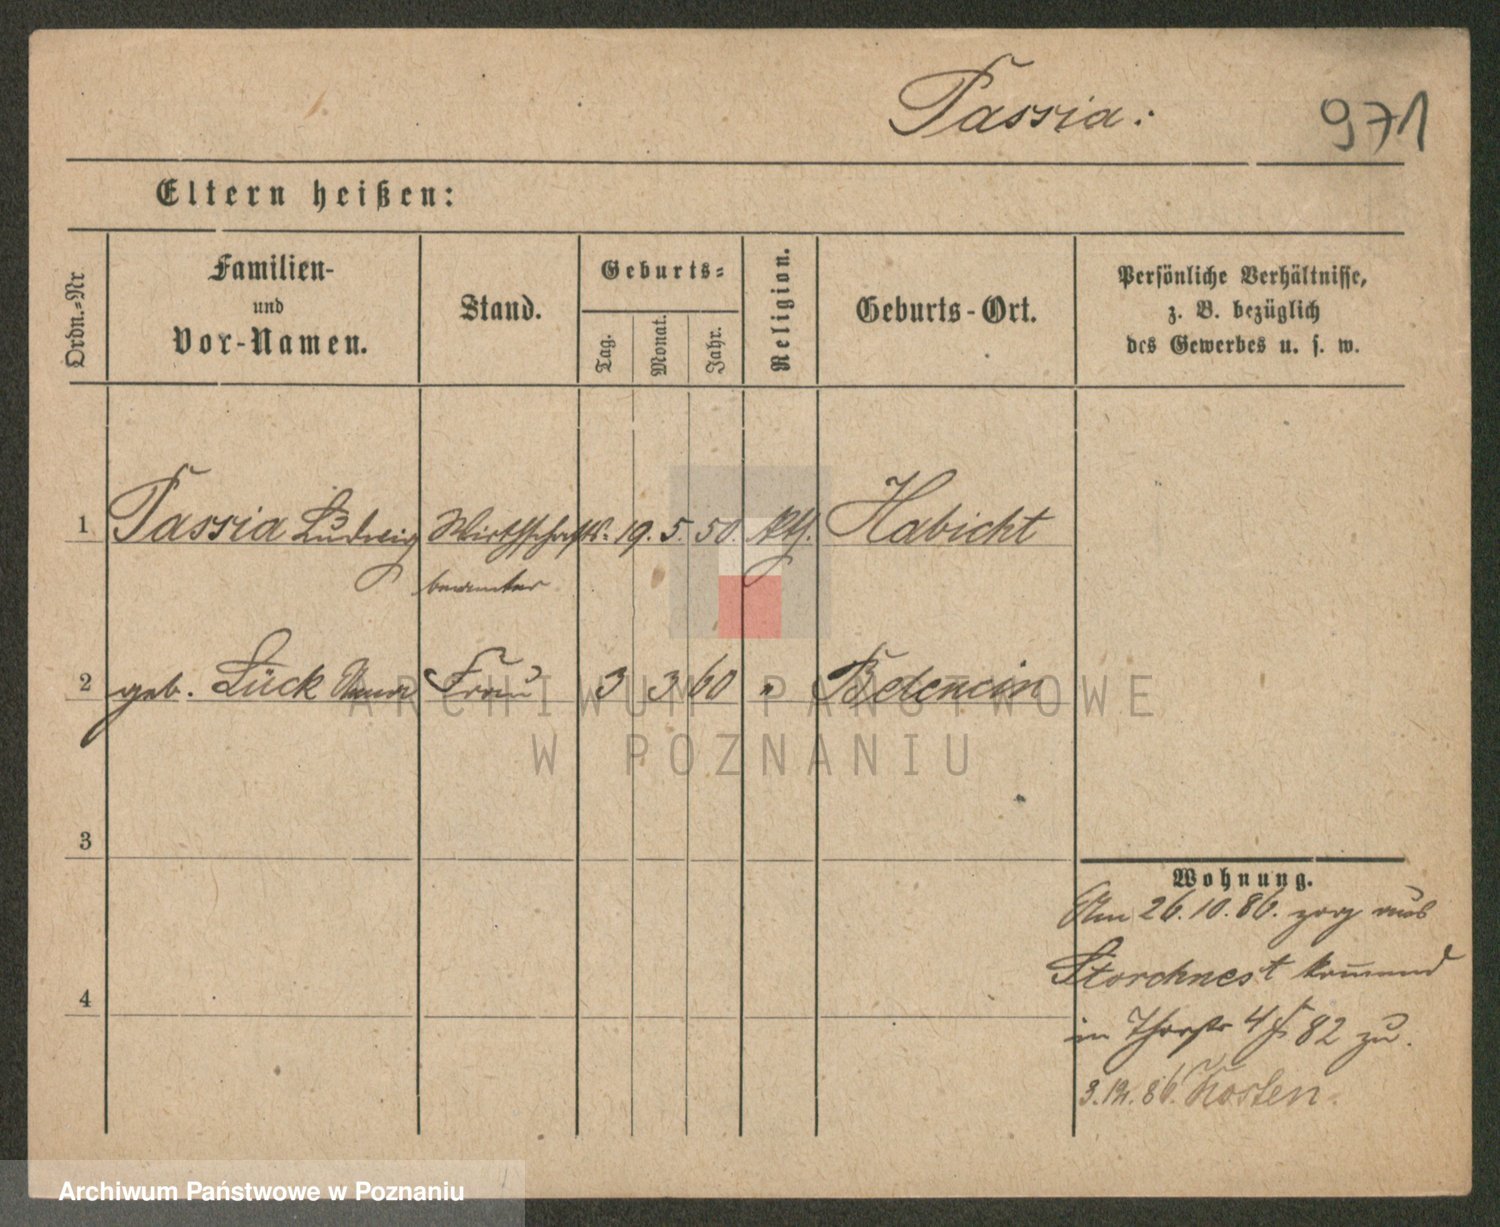 Tassia:
971
Eltern heißen:
Ordn.-Nr
Familien-
und
Vor-Namen.
Stand.
Geburts-
Tag.
Monat.
Jahr.
Religion.
Geburts-Ort.
Persönliche Verhältnisse,
z. B. bezüglich
des Gewerbes u. s. w.
1 Tassia Ludwig Wirthschafts- 19. 5. 50. kth. Habicht
beamter
2 geb. Lück Anna Frau 3 3 60 " Belencin
3
4
Wohnung.
Am 26.10.86. zog aus
Storchnest kommend
in Thorstr 4 82 zu.
3.12.86. Kosten.
ARCHIWUM PAŃSTWOWE
W POZNANIU
Archiwum Państwowe w Poznaniu